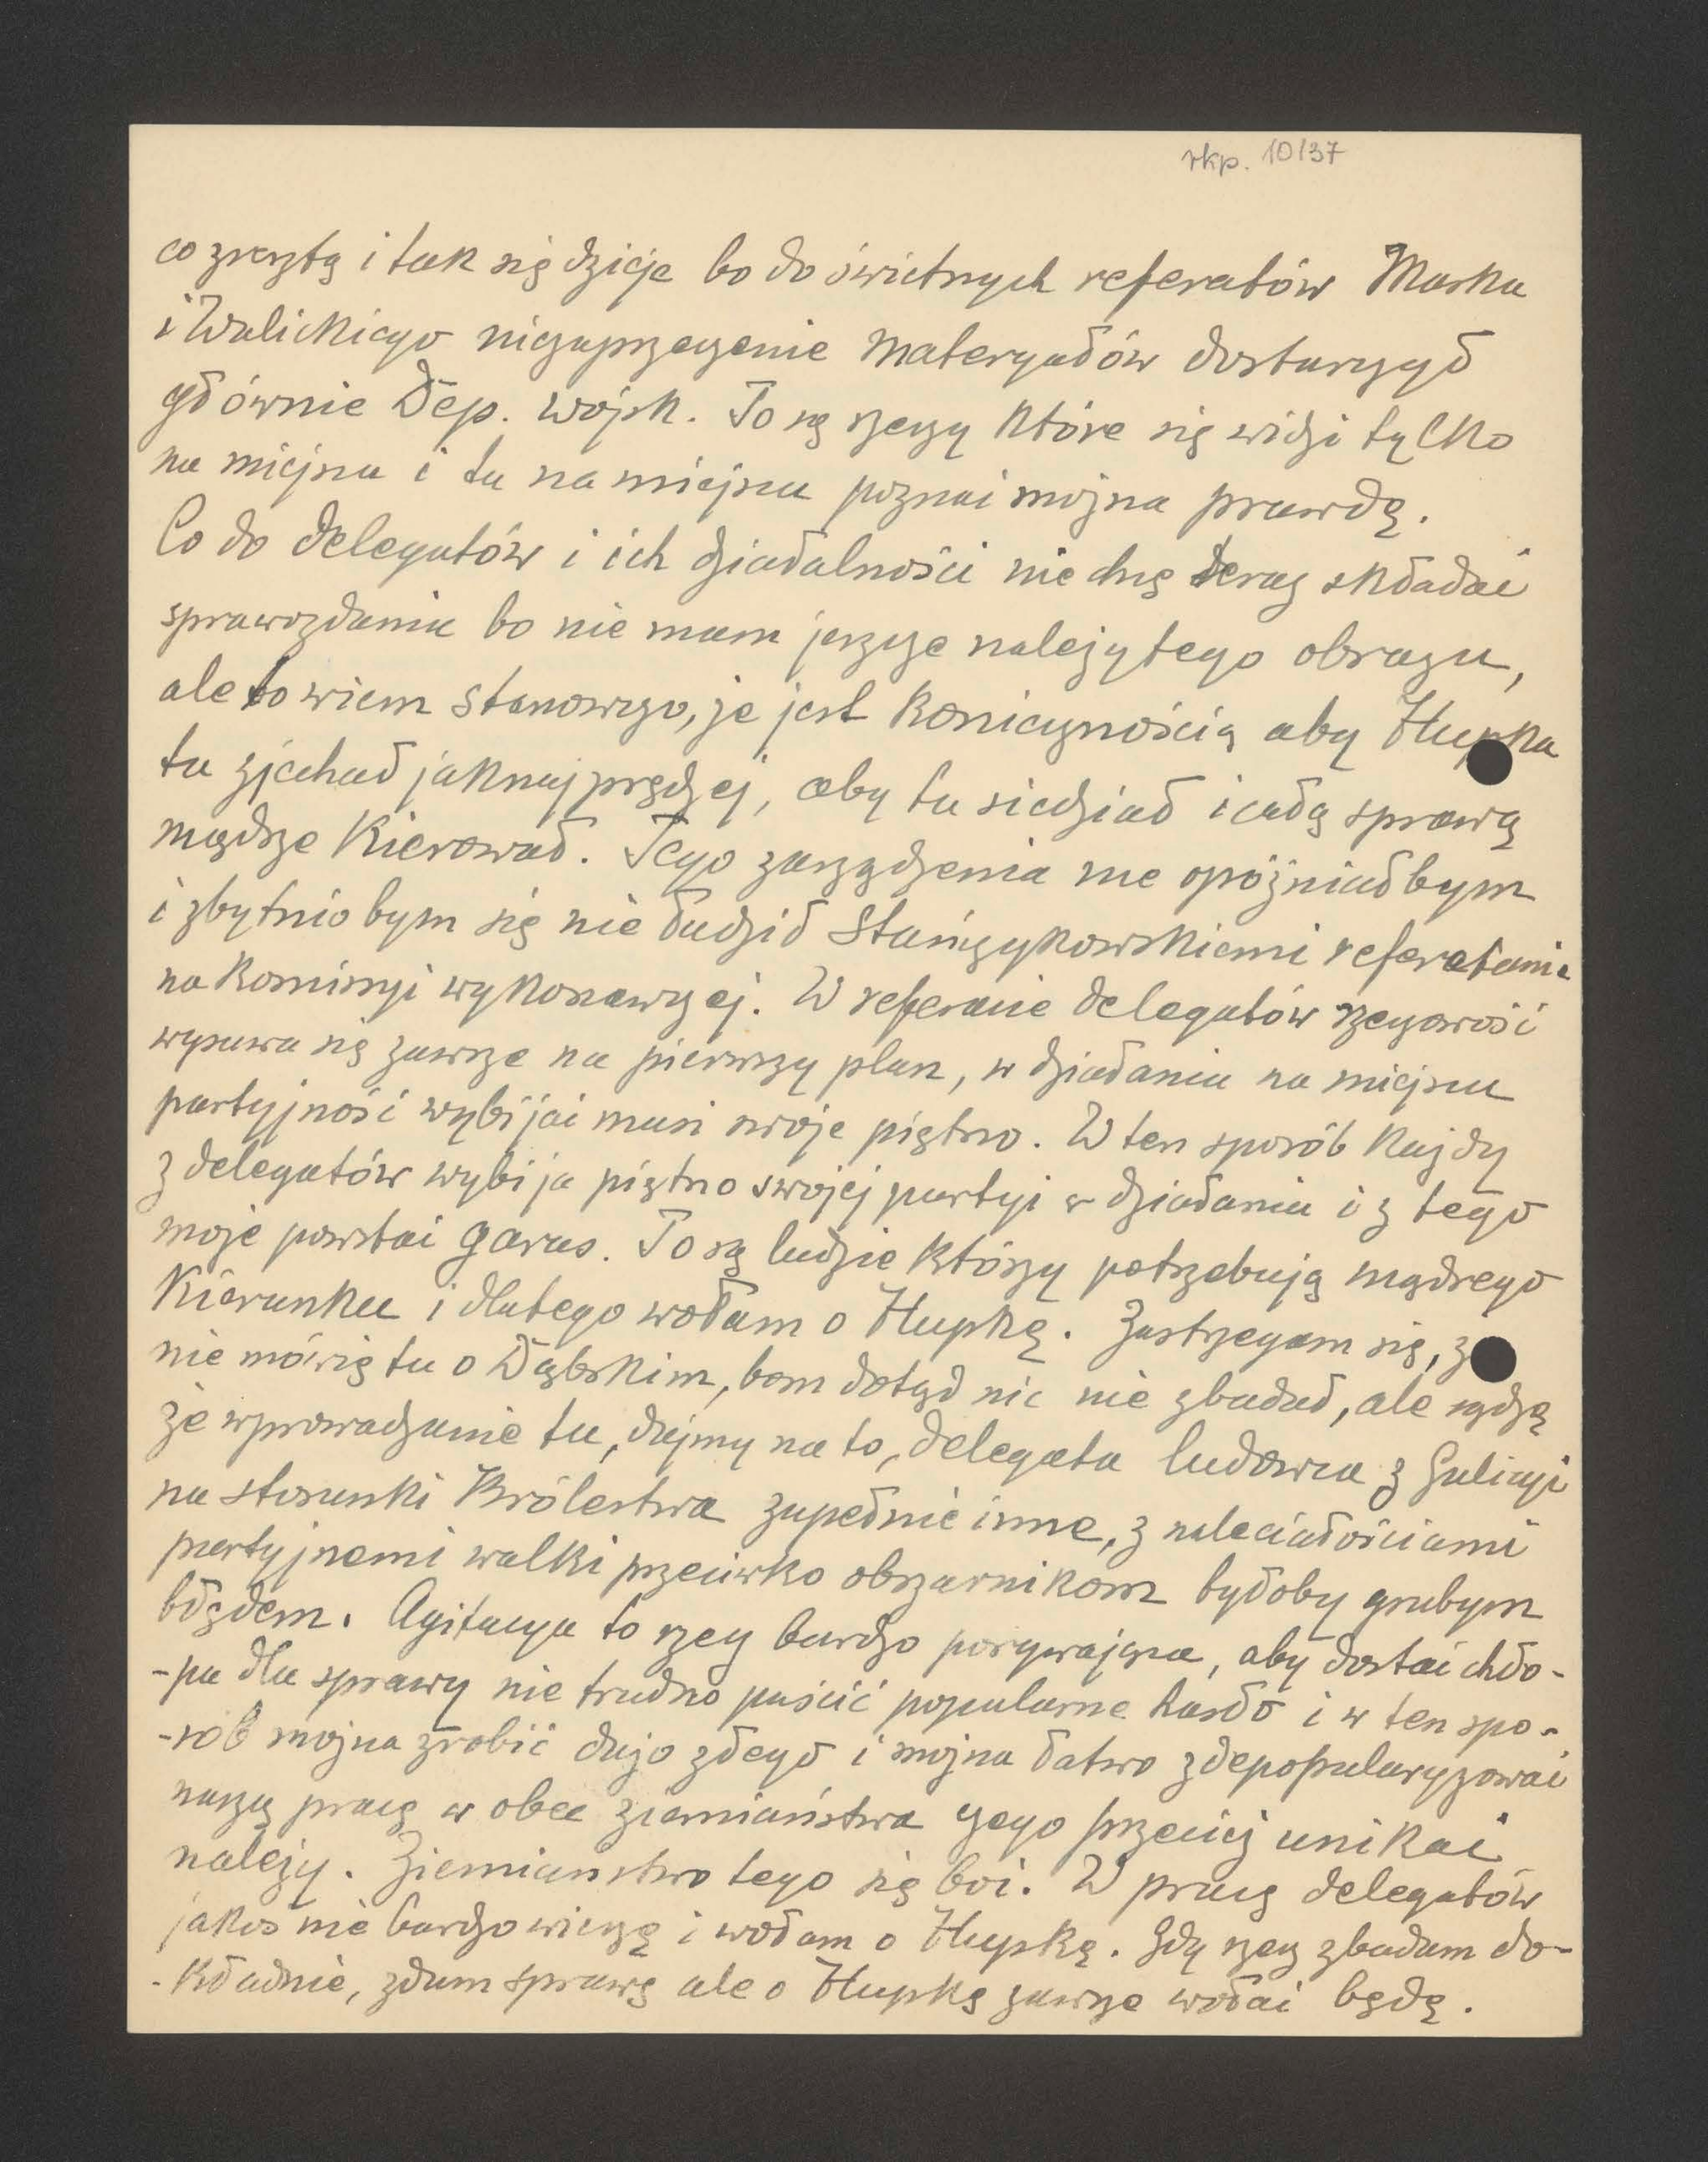 rkp. 10/37
co zresztą i tak się dzieje bo do świetnych referatów Maska
i Walickiego niezaprzeczenie materyałów dostarczył
głównie Dep. Wojsk. To są rzeczy które się widzi tylko
na miejscu i tu na miejscu poznać można prawdę.
Co do delegatów i ich działalności nie chcę teraz składać
sprawozdania bo nie mam jeszcze należytego obrazu,
ale to wiem stanowczo, że jest koniecznością aby Hupka
tu zjechał jaknajprędzej, aby tu siedział i całą sprawą
mądrze kierował. Tego zarządzenia nie opóźniałbym
i zbytnio bym się nie łudził Stańczykowskiemi referatami
na Komisyi wykonawczej. W referacie delegatów rzeczowość
wysuwa się zawsze na pierwszy plan, w działaniu na miejscu
partyjność wybijać musi swoje piętno. W ten sposób każdy
z delegatów wybija piętno swojej partyi w działaniu i z tego
może powstać galimatias. To są ludzie którzy potrzebują mądrego
kierunku i dlatego wołam o Hupkę. Zastrzegam się, że
nie mówię tu o Dąbskim, bom dotąd nic nie zbadał, ale sądzę
że wprowadzanie tu, dajmy na to, delegata ludowca z Galicyi
na stosunki Królestwa zupełnie inne, z naleciałościami
partyjnemi walki przeciwko obszarnikom byłoby grubym
błędem. Agitacya to rzecz bardzo porywająca, aby dostać chło-
-pa dla sprawy nie trudno puścić popularne hasło i w ten spo-
-sób można zrobić dużo złego i można łatwo zdepopularyzować
naszą pracę w obec ziemiaństwa czego przecież unikać
należy. Ziemiaństwo tego się boi. W pracę delegatów
jakoś nie bardzo wierzę i wołam o Hupkę. Gdy rzecz zbadam do-
-kładnie, zdam sprawę ale o Hupkę zawsze wołać będę.